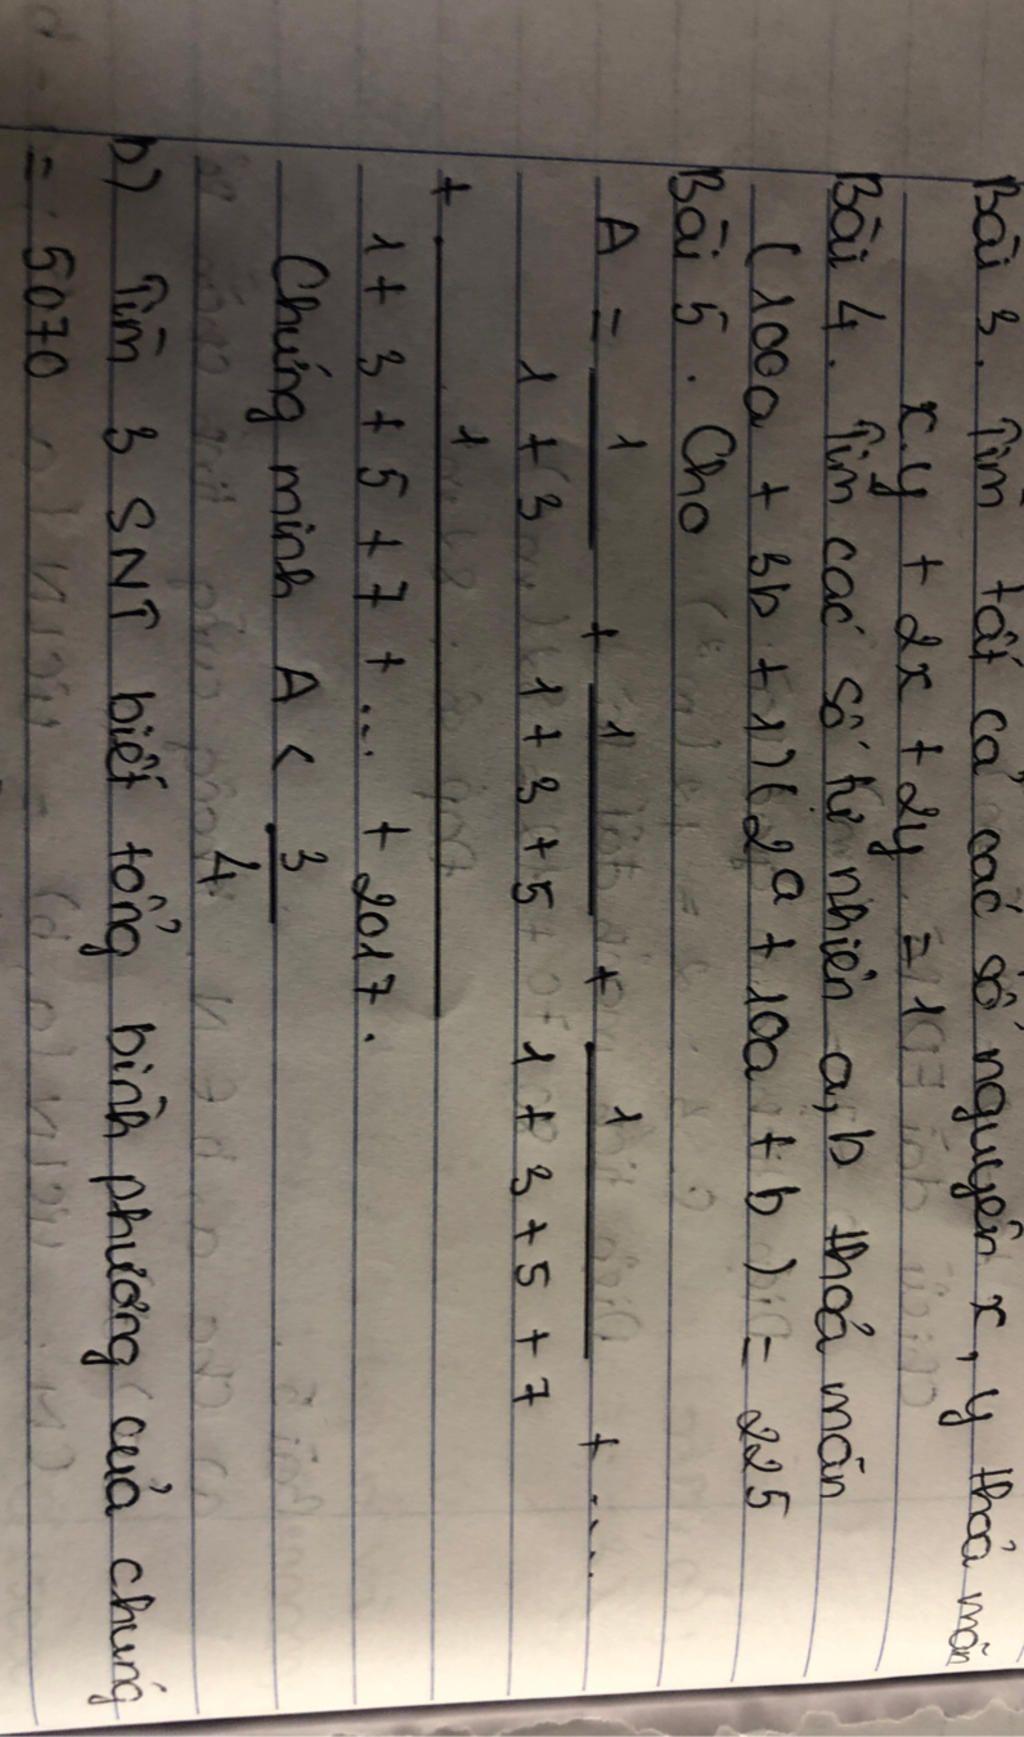 Bài 3. Tìm tất cả các số nguyên x, y thoả mãn
x.y + 2x + 2y =
Bài 4. Tìm các số tự nhiên a, b thoả mãn
(100a + 3b + 1)(2ᵃ + 10a + b) = 225
Bài 5. Cho
A = 1/(1 + 3) + 1/(1 + 3 + 5) + 1/(1 + 3 + 5 + 7) + ....
+ 1/(1 + 3 + 5 + 7 + ... + 2017.)
Chứng minh A < 3/4
b) Tìm 3 SNT biết tổng bình phương của chúng
= 5070